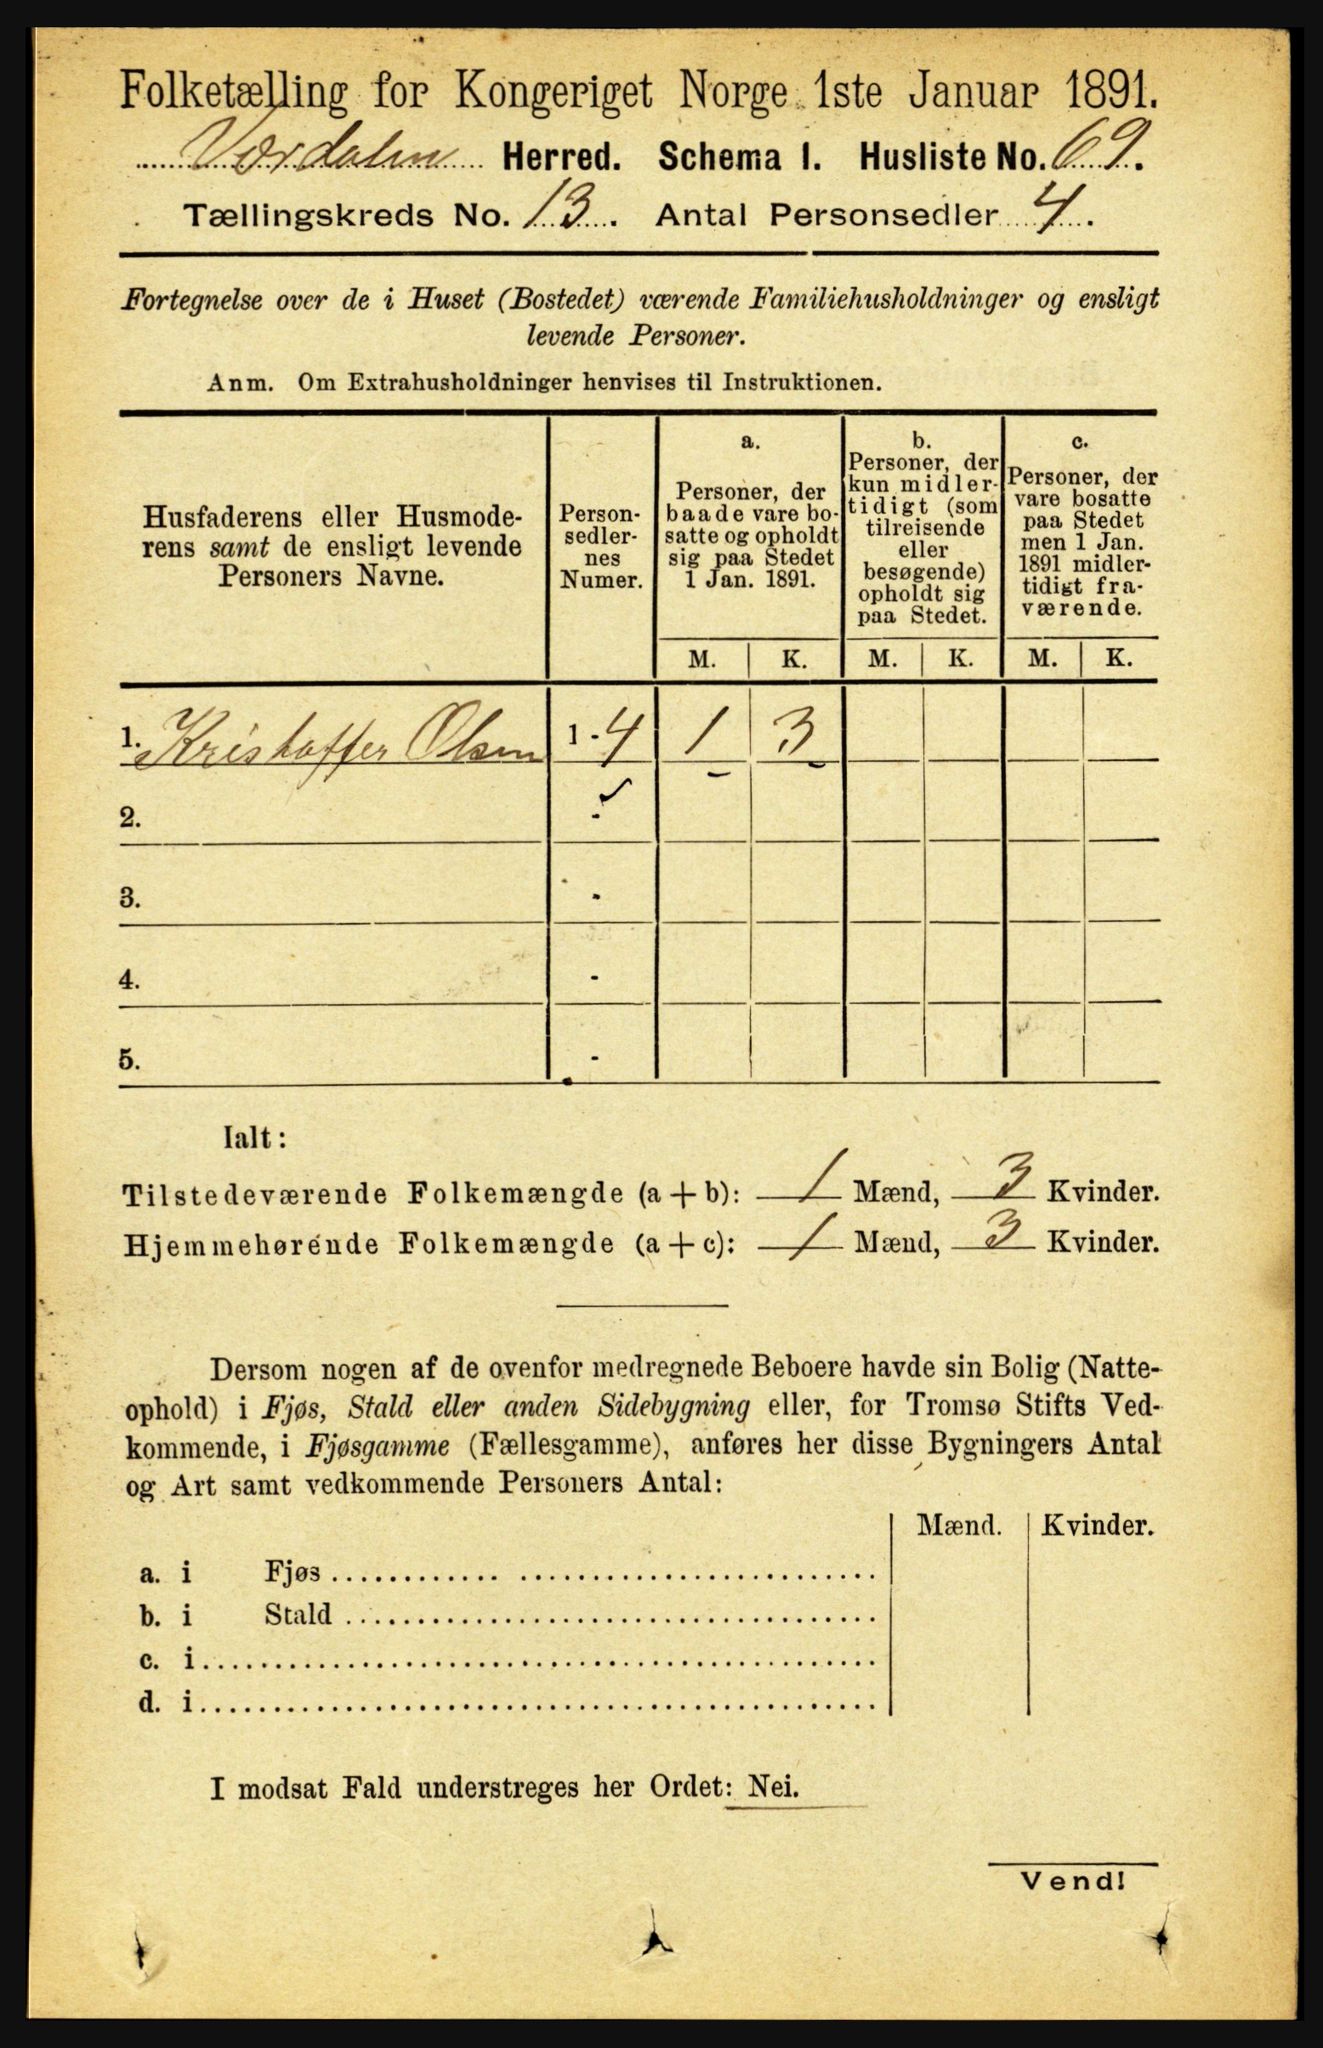 Folketælling for Kongeriget Norge 1ste Januar 1891.
Værdalen Herred. Schema 1. Husliste No. 69.
Tællingskreds No. 13. Antal Personsedler 4.
Fortegnelse over de i Huset (Bostedet) værende Familiehusholdninger og ensligt
levende Personer.
Anm. Om Extrahusholdninger henvises til Instruktionen.
Husfaderens eller Husmode-
rens samt de ensligt levende
Personers Navne.
Person-
sedler-
nes
Numer.
a.
Personer, der
baade vare bo-
satte og opholdt
sig paa Stedet
1 Jan. 1891.
b.
Personer, der
kun midler-
tidigt (som
tilreisende
eller
besøgende)
opholdt sig
paa Stedet.
c.
Personer, der
vare bosatte
paa Stedet
men 1 Jan.
1891 midler-
tidigt fra-
værende.
M. K. M. K. M. K.
1. Kristoffer Olsen 1-4 1 3
2. -
3. -
4. -
5. -
Ialt:
Tilstedeværende Folkemængde (a+b): 1 Mænd, 3 Kvinder.
Hjemmehørende Folkemængde (a+c): 1 Mænd, 3 Kvinder.
Dersom nogen af de ovenfor medregnede Beboere havde sin Bolig (Natte-
ophold) i Fjøs, Stald eller anden Sidebygning eller, for Tromsø Stifts Ved-
kommende, i Fjøsgamme (Fællesgamme), anføres her disse Bygningers Antal
og Art samt vedkommende Personers Antal:
Mænd. Kvinder.
a. i Fjøs
b. i Stald
c. i
d. i
I modsat Fald understreges her Ordet: Nei.
Vend!